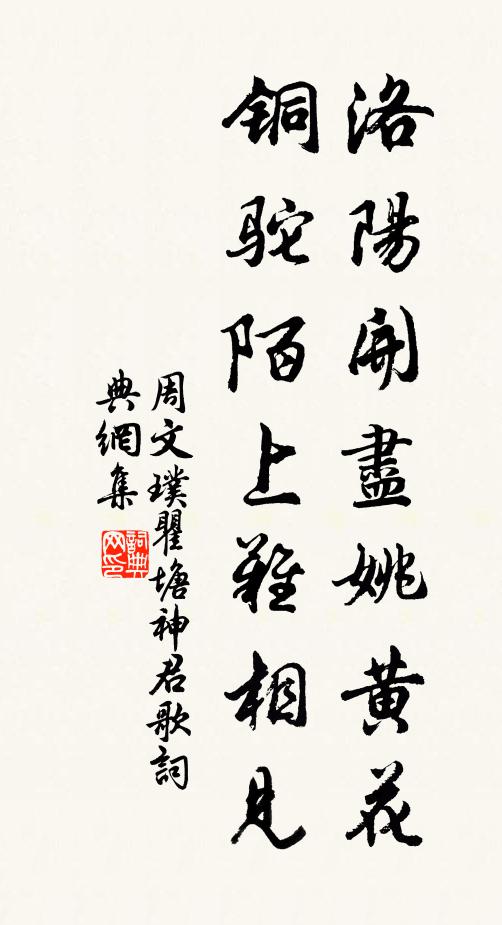 洛陽開盡姚黄花
铜驼陌上難相見
周文璞瞿塘神君歌詞
典網集
詞典
网印